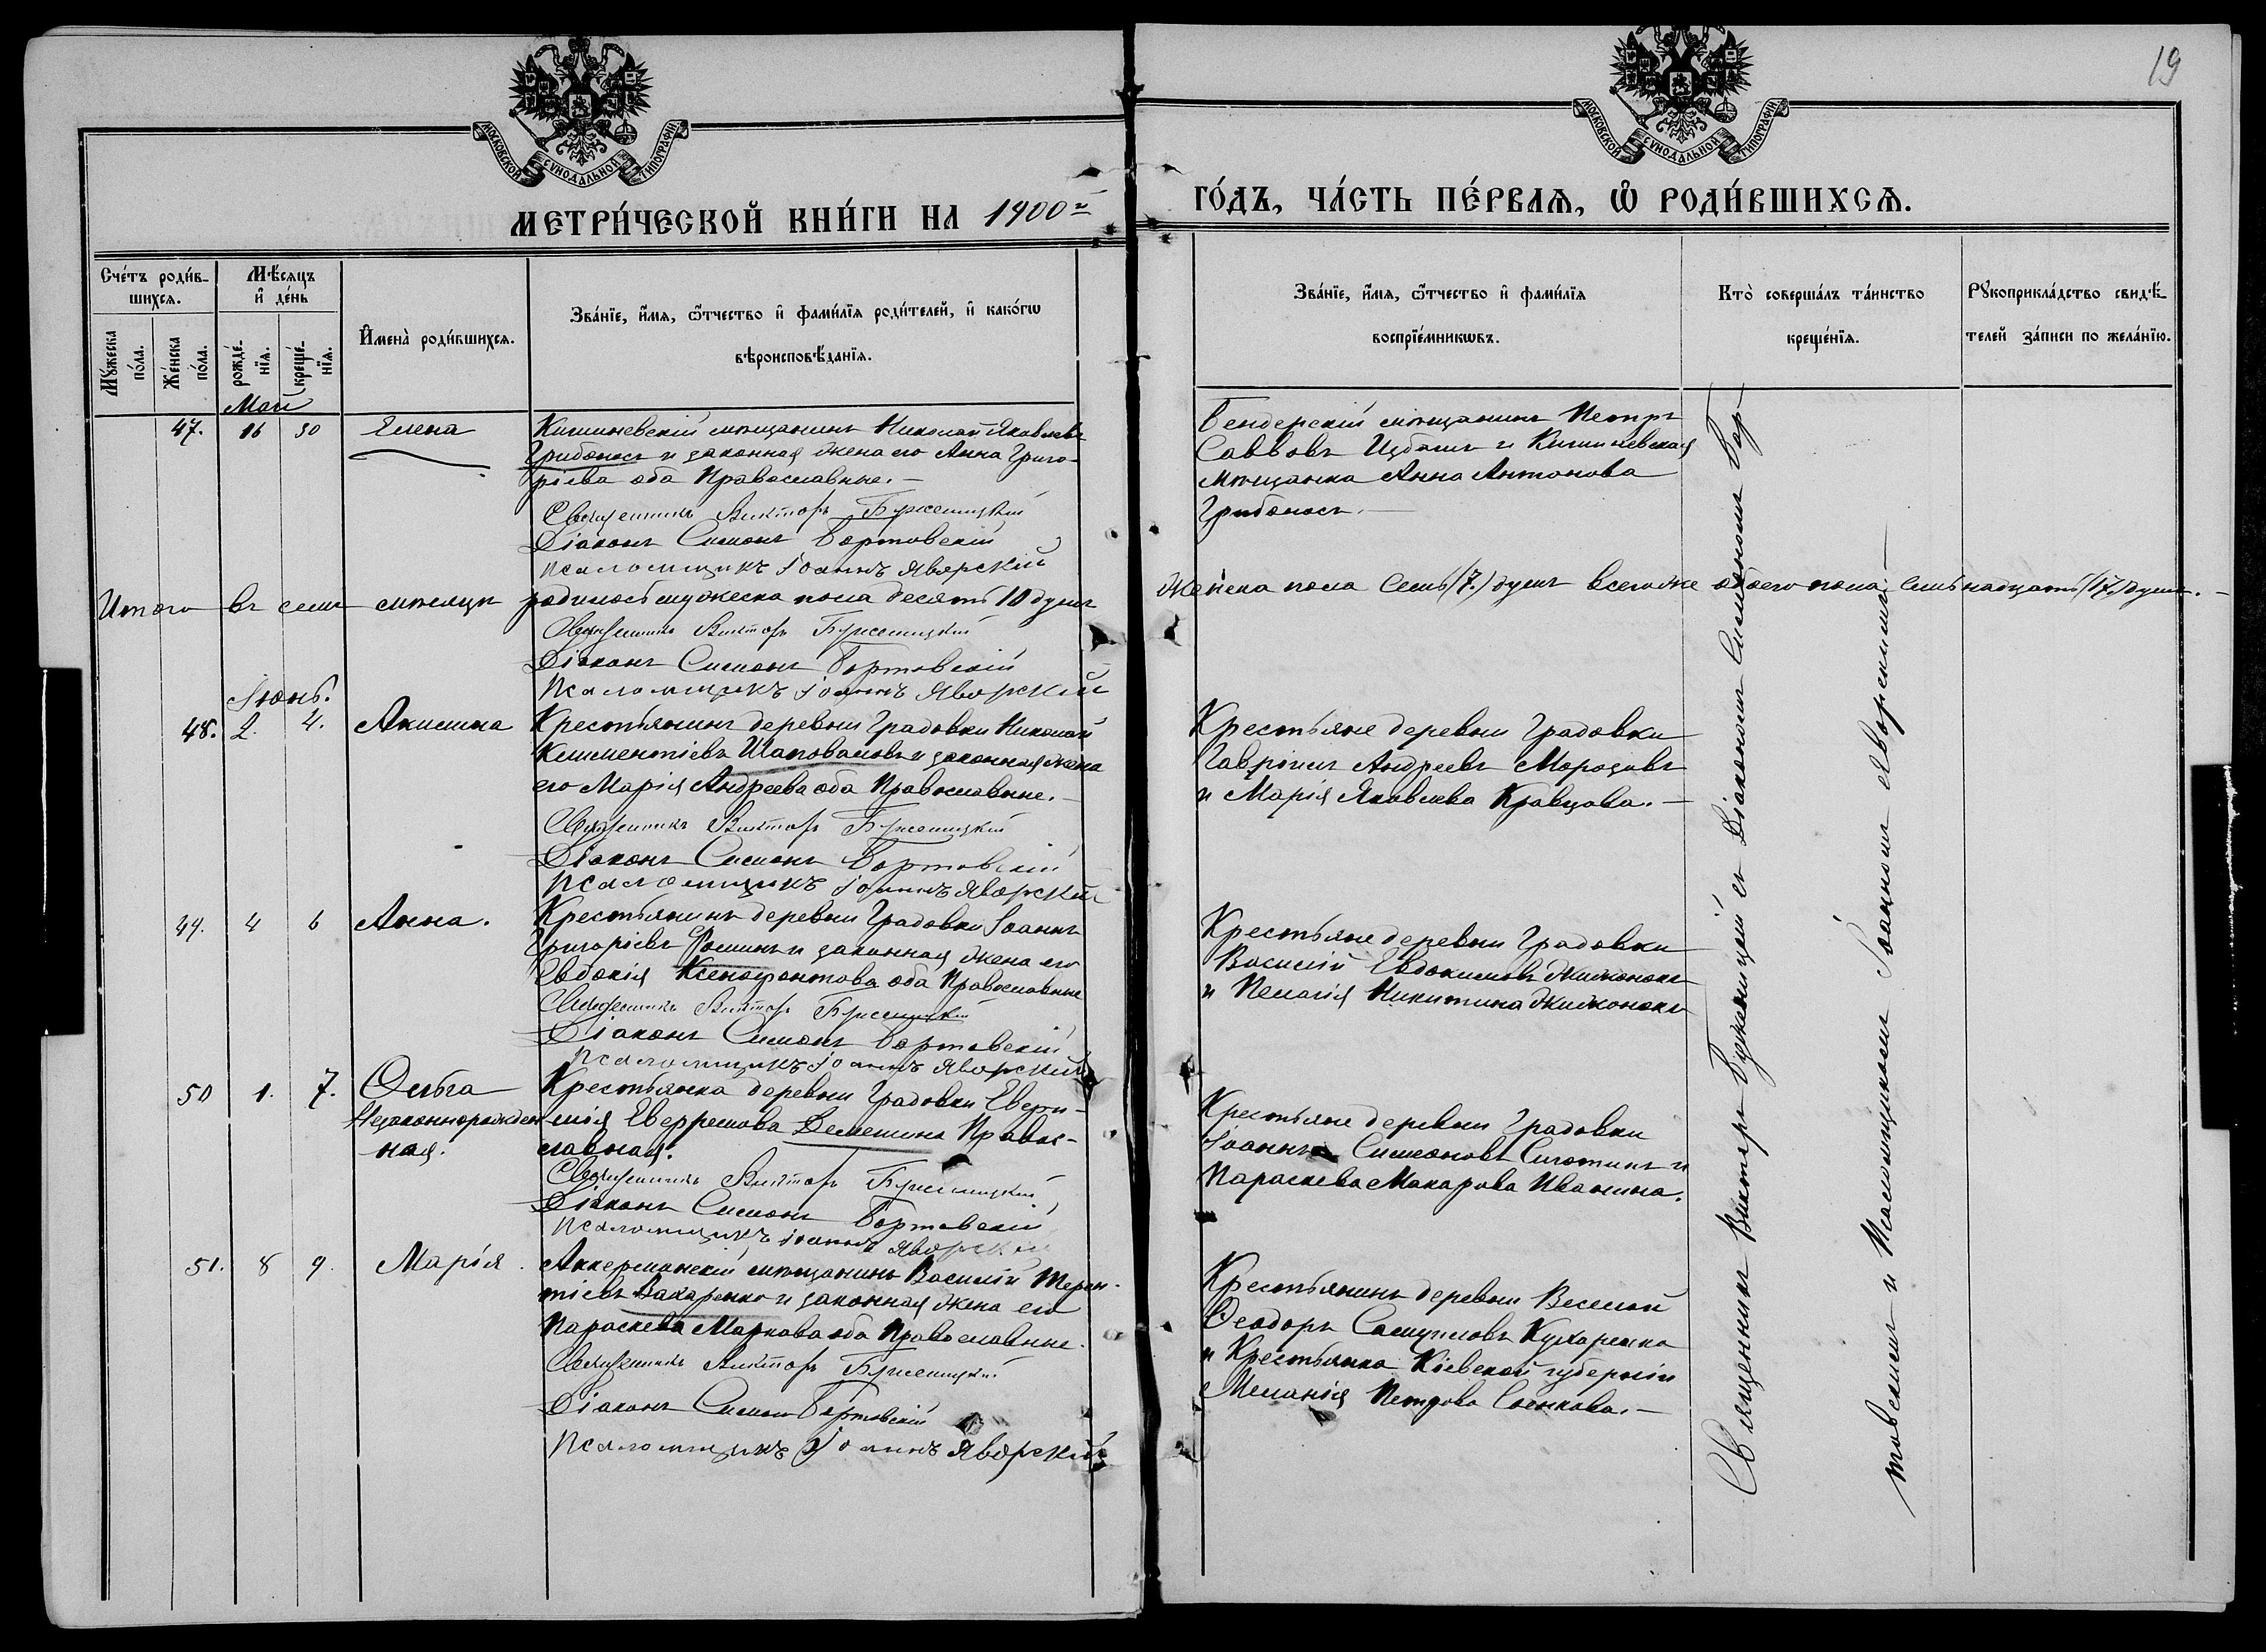 19
МОСКОВСКОЙ СѴНОДАЛЬНОЙ ТИПОГРАФІИ
МОСКОВСКОЙ СѴНОДАЛЬНОЙ ТИПОГРАФІИ
МЕТРИ́ЧЕСКОЙ КНИ́ГИ НА 1900й
ГО́ДЪ, ЧА́СТЬ ПЕ́РВАѦ, Ѽ РОДИ́ВШИХСѦ.
Сче́тъ роди́в-
шихсѧ.
Мѣ́сѧцъ
и҆ де́нь
Мꙋ́жеска
по́ла.
Же́нска
по́ла.
рожде́-
нїѧ.
креще́-
нїѧ.
И҆мена̀ роди́вшихсѧ.
Зва́нїе, и҆́мѧ, ѻ҆́тчество и҆ фами́лїѧ роди́телей, и҆ како́гѡ
вѣроисповѣ́данїѧ.
Зва́нїе, и҆́мѧ, ѻ҆́тчество и҆ фами́лїѧ
воспрїе́мникѡвъ.
Кто̀ соверша́лъ та́инство
креще́нїѧ.
Рꙋкоприкла́дство свидѣ́-
телей за́писи по жела́нїю.
Май
47. 16 30 Елена
Кишиневскій мѣщанинъ Николай Яковлевъ
Грибоносъ и законная жена его Анна Григо-
рьева оба Православные.
Священникъ Викторъ Буженицкій
Діаконъ Симеонъ Бортовскій
Псаломщикъ Іоаннъ Яворскій
Бендерскій мѣщанинъ Петръ
Саввовъ и Кишиневская
мѣщанка Анна Антонова
Грибоносъ.
Итого въ семъ мѣсяцѣ родилось мужеска пола десять 10 душъ
Женска пола семь (7) душъ всего же обоего пола семьнадцать (17) душъ.
Священникъ Викторъ Буженицкій
Діаконъ Симеонъ Бортовскій
Псаломщикъ Іоаннъ Яворскій
Іюнь.
48. 2. 4. Акилина
Крестьянинъ деревни Градовки Николай
Климентіевъ Шаповаловъ и законная жена
его Марія Андреева оба Православные.
Священникъ Викторъ Буженицкій
Діаконъ Симеонъ Бортовскій
Псаломщикъ Іоаннъ Яворскій
Крестьяне деревни Градовки
Гавріилъ Андреевъ Морозовъ
и Марія Яковлева Кравцова.
49. 4 6 Анна.
Крестьянинъ деревни Градовки Іоаннъ
Григоріевъ Фоминъ и законная жена его
Евдокія Ксенофонтова оба Православные
Священникъ Викторъ Буженицкій
Діаконъ Симеонъ Бортовскій
Псаломщикъ Іоаннъ Яворскій
Крестьяне деревни Градовки
Василій Евдокимовъ
и Пелагія Никитина
50 1. 7. Ольга
Незаконнорожден-
ная.
Крестьянка деревни Градовки Евфи-
мія Демешина Правос-
лавная.
Священникъ Викторъ Буженицкій
Діаконъ Симеонъ Бортовскій
Псаломщикъ Іоаннъ Яворскій
Крестьяне деревни Градовки
Іоаннъ Симеоновъ Сиротинъ и
Параскева Макарова Иванина.
51. 8 9. Марія.
Аккерманскій мѣщанинъ Василій Терен-
тіевъ Захаренко и законная жена его
Параскева Маркова оба Православные.
Священникъ Викторъ Буженицкій
Діаконъ Симеонъ Бортовскій
Псаломщикъ Іоаннъ Яворскій
Крестьянинъ деревни Веселой
Ѳеодоръ Самуиловъ Кухаренко
и Крестьянка Кіевской губерніи
Меланія Петрова
Священникъ Викторъ Буженицкій съ Діакономъ Симеономъ Бор-
товскимъ и Псаломщикомъ Іоанномъ Яворскимъ.